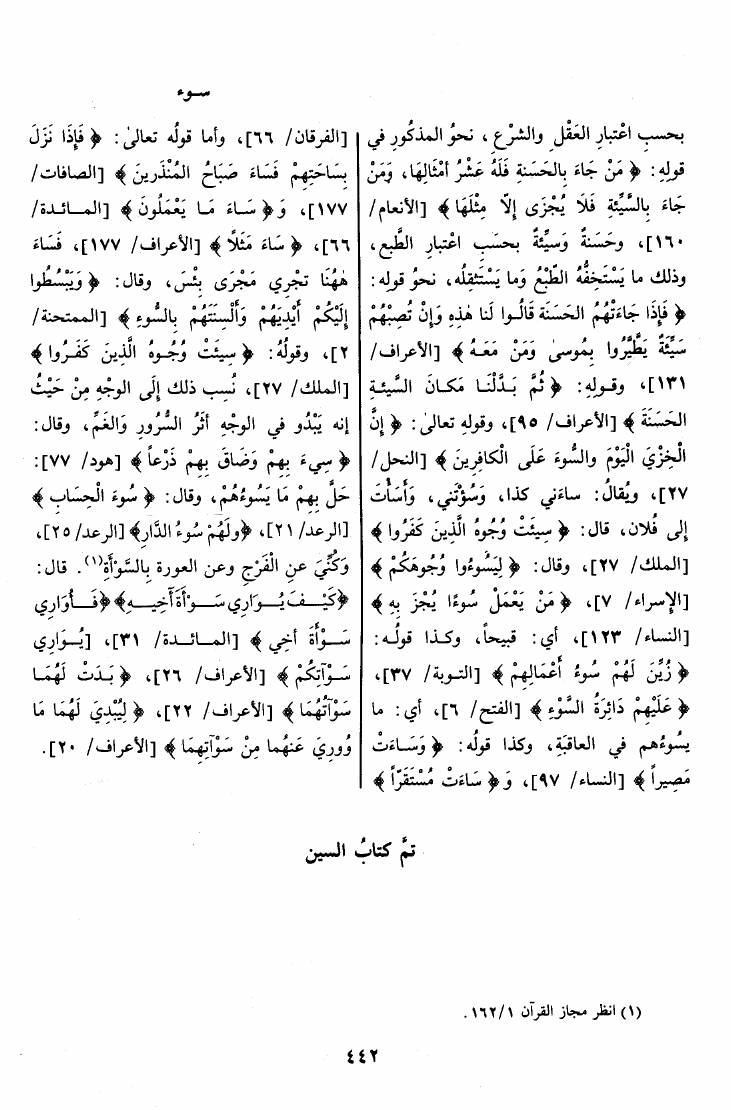 سوء
بحسبِ اعْتبارِ العَقْلِ والشرْعِ، نحوُ المذكُورِ في
قولِهِ: ﴿ مَنْ جَاءَ بِالحَسَنةِ فَلَهُ عَشْرُ أمْثَالِهَا، وَمَنْ
جَاءَ بِالسَّيِّئَةِ فَلَا يُجْزَى إلَّا مِثْلَهَا ﴾ [الأنعام/
١٦٠]، وحَسَنةٌ وَسيِّئةٌ بحسَبِ اعْتبارِ الطَّبع،
وذلك ما يَسْتَخِفُّهُ الطَّبْعُ وَما يَسْتَثقِلُه، نحوُ قوله:
﴿ فَإِذَا جَاءَتْهُمُ الحَسَنَة قَالُوا لَنا هٰذِهِ وَإنْ تُصِبْهُمْ
سَيِّئَةٌ يَطَّيَّرُوا بِمُوسىٰ وَمَنْ مَعَهُ ﴾ [الأعراف/
١٣١]، وقولِهِ: ﴿ ثُمَّ بَدَّلْنَا مَكَانَ السَّيئَةِ
الحَسَنَةَ ﴾ [الأعراف/ ٩٥]، وقوله تعالىٰ: ﴿ إِنَّ
الْخِزْيَ الْيَوْمَ والسُّوءَ عَلَى الْكافِرِينَ ﴾ [النحل/
٢٧]، ويُقالُ: ساءَني كذا، وَسُؤْتَني، وَأَسَأْتَ
إلى فُلان، قال: ﴿ سِيئَتْ وُجُوهُ الَّذِينَ كَفَرُوا ﴾
[الملك/ ٢٧]، وقال: ﴿ لِيَسُوءُوا وُجُوهَكُمْ ﴾
[الإسراء/ ٧]، ﴿ مَنْ يَعْمَلْ سُوءًا يُجْزَ بِهِ ﴾
[النساء/ ١٢٣]، أي: قبيحاً، وكذا قولُه:
﴿ زُيِّنَ لَهُمْ سُوءُ أَعْمَالِهِمْ ﴾ [التوبة/ ٣٧]،
﴿ عَلَيْهِمْ دَائِرَةُ السَّوْءِ ﴾ [الفتح/ ٦]، أي: ما
يسُوءُهم في العاقبَةِ، وكذا قولُه: ﴿ وَسَاءَتْ
مَصِيراً ﴾ [النساء/ ٩٧]، وَ﴿ سَاءَتْ مُسْتَقَرّاً ﴾
[الفرقان/ ٦٦]، وأما قولُه تعالىٰ: ﴿ فَإِذَا نَزَلَ
بِسَاحَتِهِمْ فَسَاءَ صَبَاحُ المُنْذَرِينَ ﴾ [الصافات/
١٧٧]، وَ﴿ سَاءَ مَا يَعْمَلُونَ ﴾ [المائدة/
٦٦]، ﴿ سَاءَ مَثَلاً ﴾ [الأعراف/ ١٧٧]، فَسَاءَ
هٰهُنَا تَجْرِي مَجْرَى بِئْسَ، وقال: ﴿ وَيَبْسُطُوا
إِلَيْكُمْ أَيْدِيَهُمْ وَأَلْسِنَتَهُمْ بِالسُّوءِ ﴾ [الممتحنة/
٢]، وقولُهُ: ﴿ سِيئَتْ وُجُوهُ الَّذِينَ كَفَرُوا ﴾
[الملك/ ٢٧]، نُسِب ذلك إلَى الوجْهِ مِنْ حَيْثُ
إنه يَبْدُو في الوَجْهِ أثَرُ السُّرُورِ وَالغَمِّ، وقال:
﴿ سِيءَ بِهِمْ وَضَاقَ بِهِمْ ذَرْعاً ﴾ [هود/ ٧٧]:
حَلَّ بِهِمْ مَا يَسُوءُهُمْ، وقال: ﴿ سُوءَ الْحِسَابِ ﴾
[الرعد/ ٢١]، ﴿وَلَهُمْ سُوءُ الدَّارِ﴾ [الرعد/ ٢٥]،
وَكُنِّيَ عنِ الْفَرْجِ وعنِ العورة بِالسَّوْأَةِ(١). قال:
﴿كَيْفَ يُوَارِي سَوْأَةَ أَخِيهِ﴾ ﴿فَأُوَارِي
سَوْأَةَ أخي ﴾ [المائدة/ ٣١]، [يُوَارِي
سَوْآتِكُمْ ﴾ [الأعراف/ ٢٦]، ﴿ بَدَتْ لَهُمَا
سَوْآتُهُمَا ﴾ [الأعراف/ ٢٢]، ﴿ لِيُبْدِيَ لَهُمَا مَا
وُورِيَ عَنهُما مِنْ سَوْآتِهِمَا ﴾ [الأعراف/ ٢٠].
تمَّ كتابُ السين
(١) انظر مجاز القرآن ١/ ١٦٢.
٤٤٢